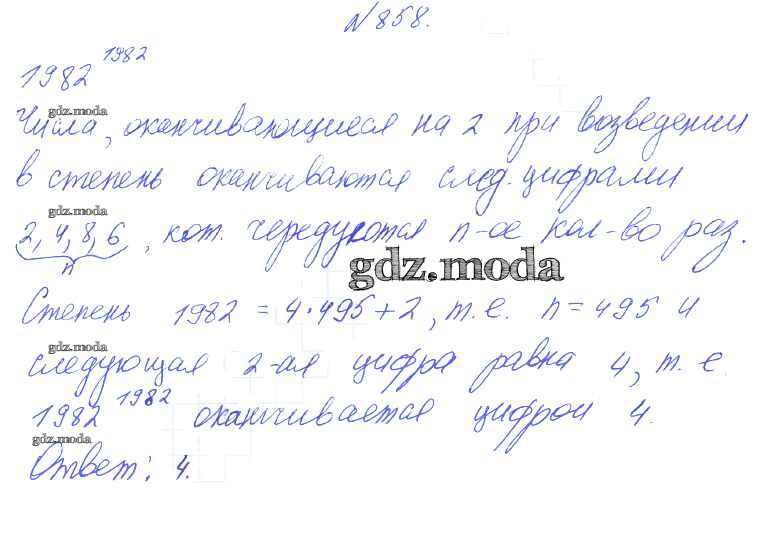 №858.
1982^1982
gdz.moda
Числа, оканчивающиеся на 2 при возведении
в степень оканчиваются след. цифрами
gdz.moda
2, 4, 8, 6, кот. чередуются n-ое кол-во раз.
n
gdz.moda
Степень 1982 = 4·495+2, т.е. n=495 и
gdz.moda
следующая 2-ая цифра равна 4, т.е.
1982^1982 оканчивается цифрой 4.
gdz.moda
Ответ: 4.